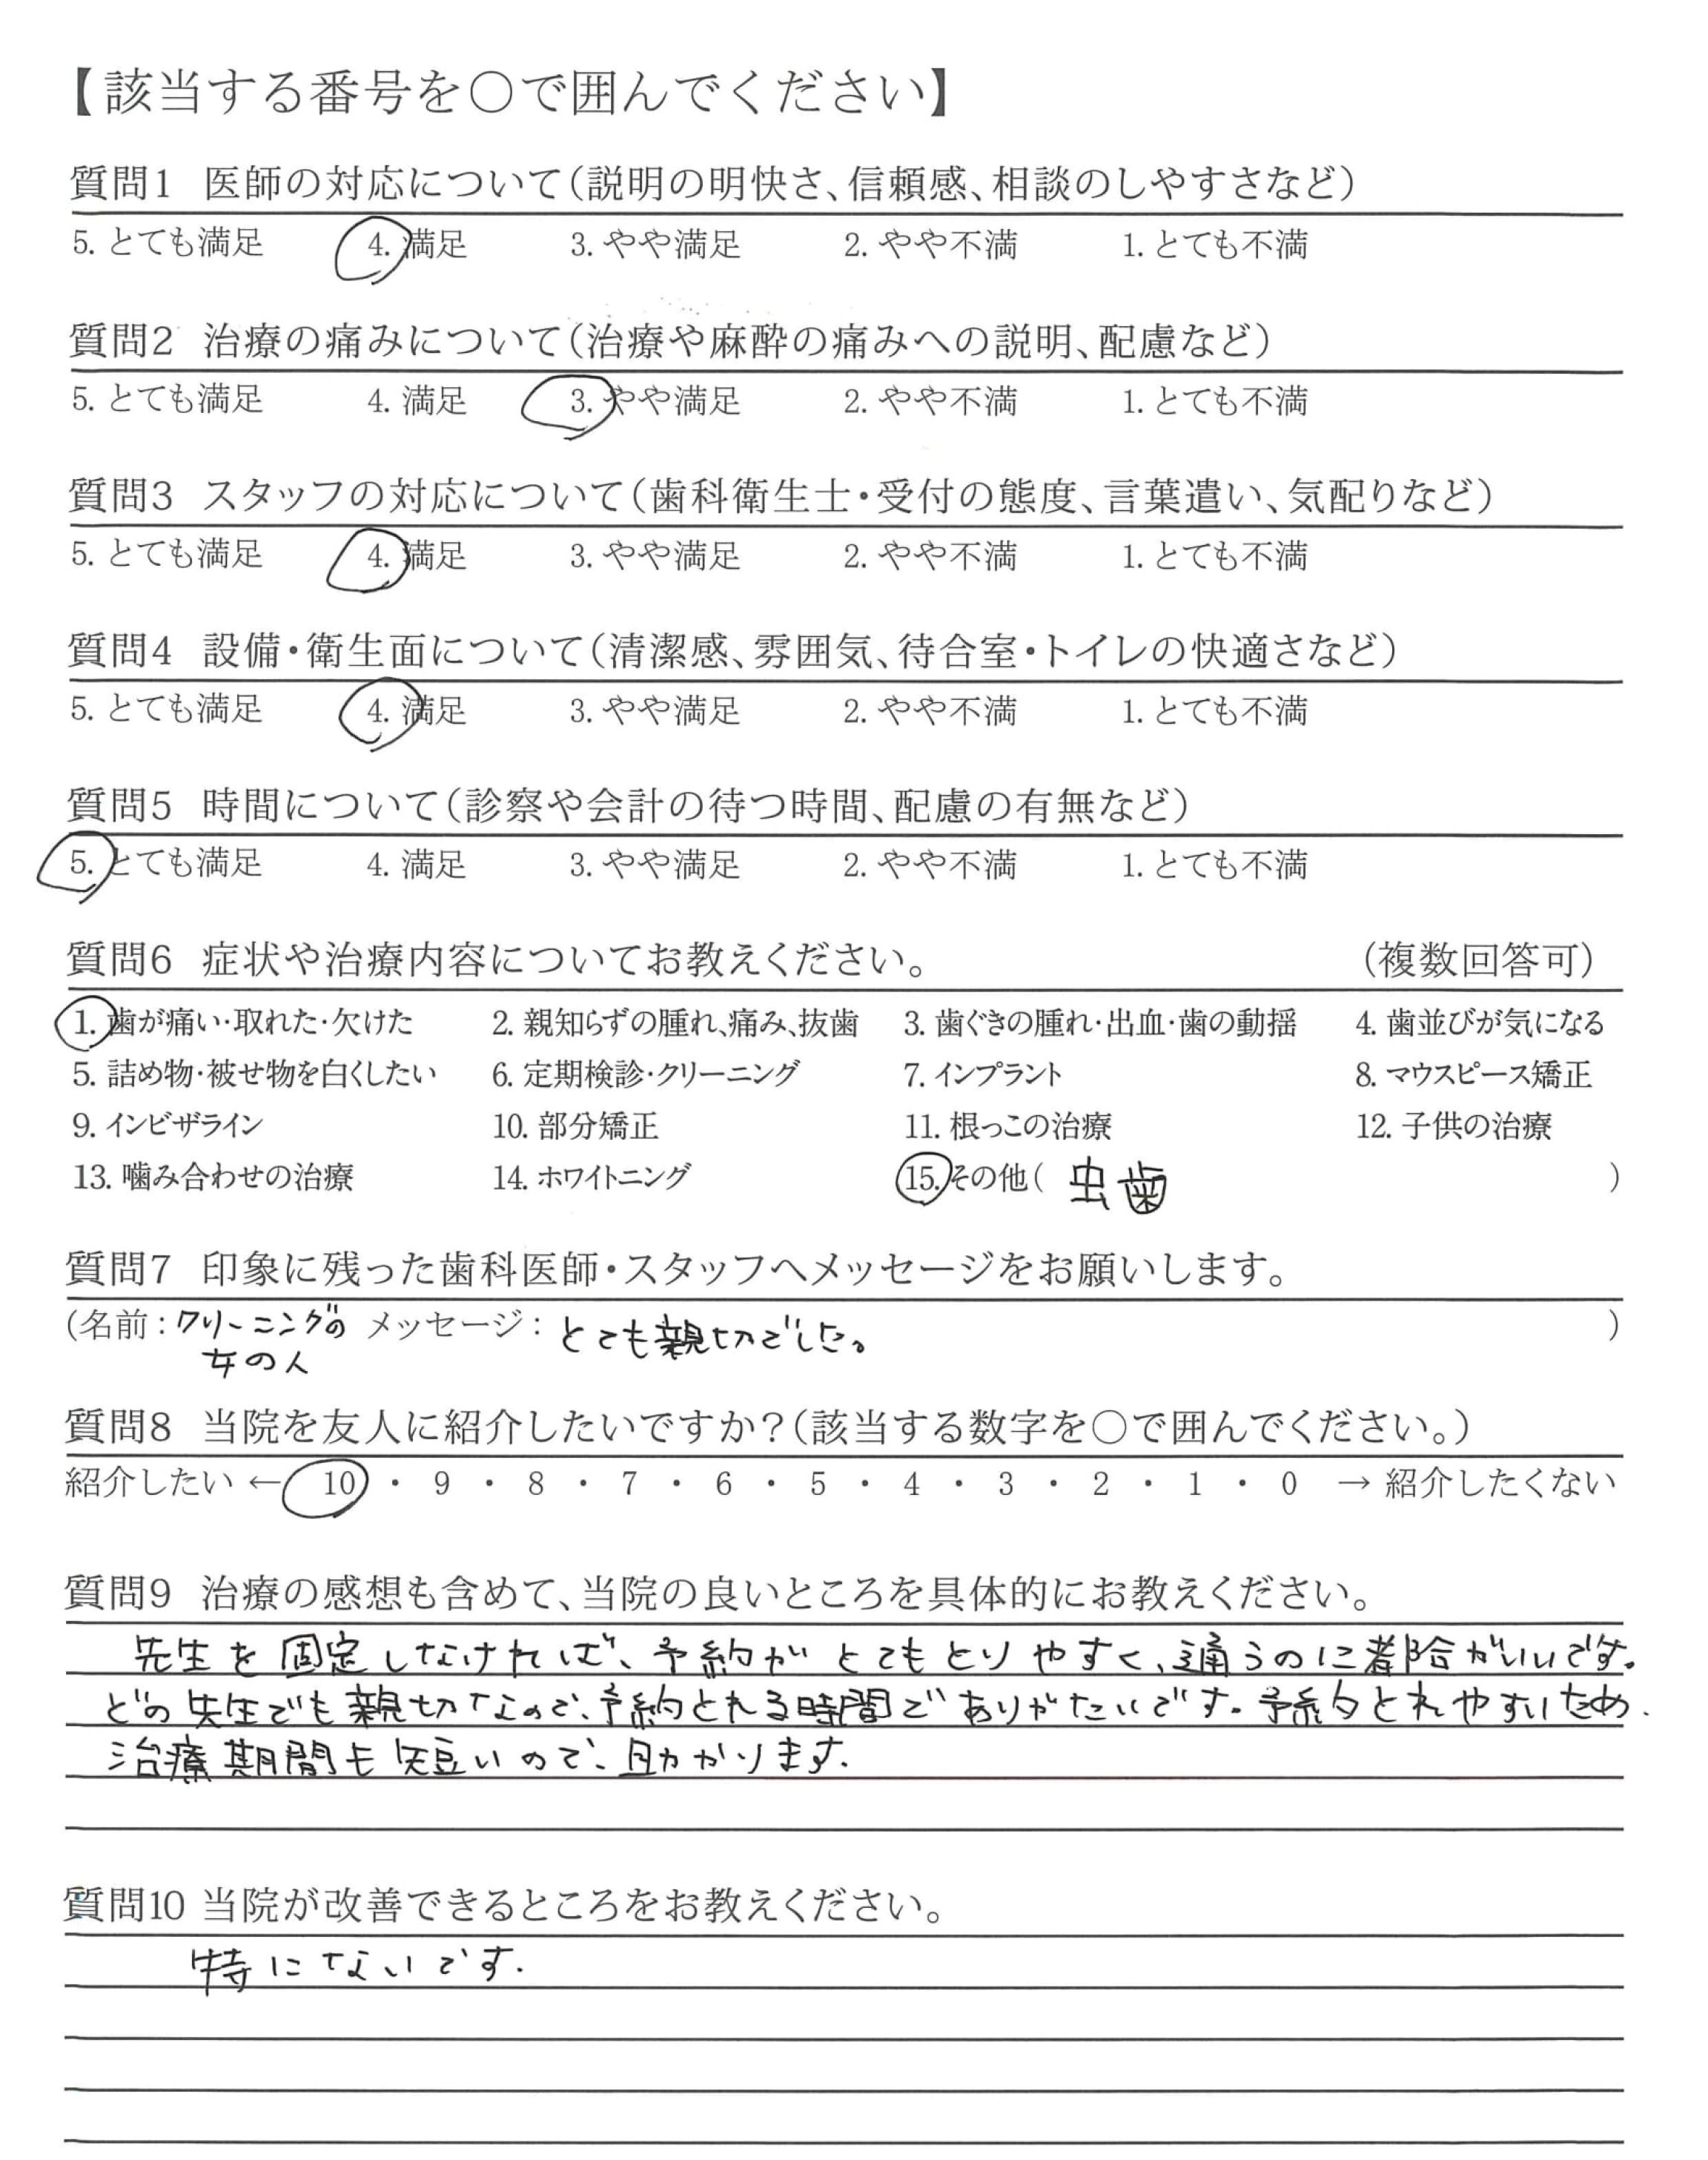 【該当する番号を○で囲んでください】
質問1 医師の対応について(説明の明快さ、信頼感、相談のしやすさなど)
5. とても満足 4. 満足 3. やや満足 2. やや不満 1. とても不満
質問2 治療の痛みについて(治療や麻酔の痛みへの説明、配慮など)
5. とても満足 4. 満足 3. やや満足 2. やや不満 1. とても不満
質問3 スタッフの対応について(歯科衛生士・受付の態度、言葉遣い、気配りなど)
5. とても満足 4. 満足 3. やや満足 2. やや不満 1. とても不満
質問4 設備・衛生面について(清潔感、雰囲気、待合室・トイレの快適さなど)
5. とても満足 4. 満足 3. やや満足 2. やや不満 1. とても不満
質問5 時間について(診察や会計の待つ時間、配慮の有無など)
5. とても満足 4. 満足 3. やや満足 2. やや不満 1. とても不満
質問6 症状や治療内容についてお教えください。 (複数回答可)
1. 歯が痛い・取れた・欠けた 2. 親知らずの腫れ、痛み、抜歯 3. 歯ぐきの腫れ・出血・歯の動揺 4. 歯並びが気になる
5. 詰め物・被せ物を白くしたい 6. 定期検診・クリーニング 7. インプラント 8. マウスピース矯正
9. インビザライン 10. 部分矯正 11. 根っこの治療 12. 子供の治療
13. 噛み合わせの治療 14. ホワイトニング 15. その他( 虫歯 )
質問7 印象に残った歯科医師・スタッフへメッセージをお願いします。
(名前:クリーニングの メッセージ:とても親切でした。 )
女の人
質問8 当院を友人に紹介したいですか?(該当する数字を○で囲んでください。)
紹介したい ← 10 ・ 9 ・ 8 ・ 7 ・ 6 ・ 5 ・ 4 ・ 3 ・ 2 ・ 1 ・ 0 → 紹介したくない
質問9 治療の感想も含めて、当院の良いところを具体的にお教えください。
先生を固定しなければ、予約がとてもとりやすく、通うのに都合がいいです。
どの先生でも親切なので、予約とれる時間でありがたいです。予約とれやすいため、
治療期間も短いので、助かります。
質問10 当院が改善できるところをお教えください。
特にないです.